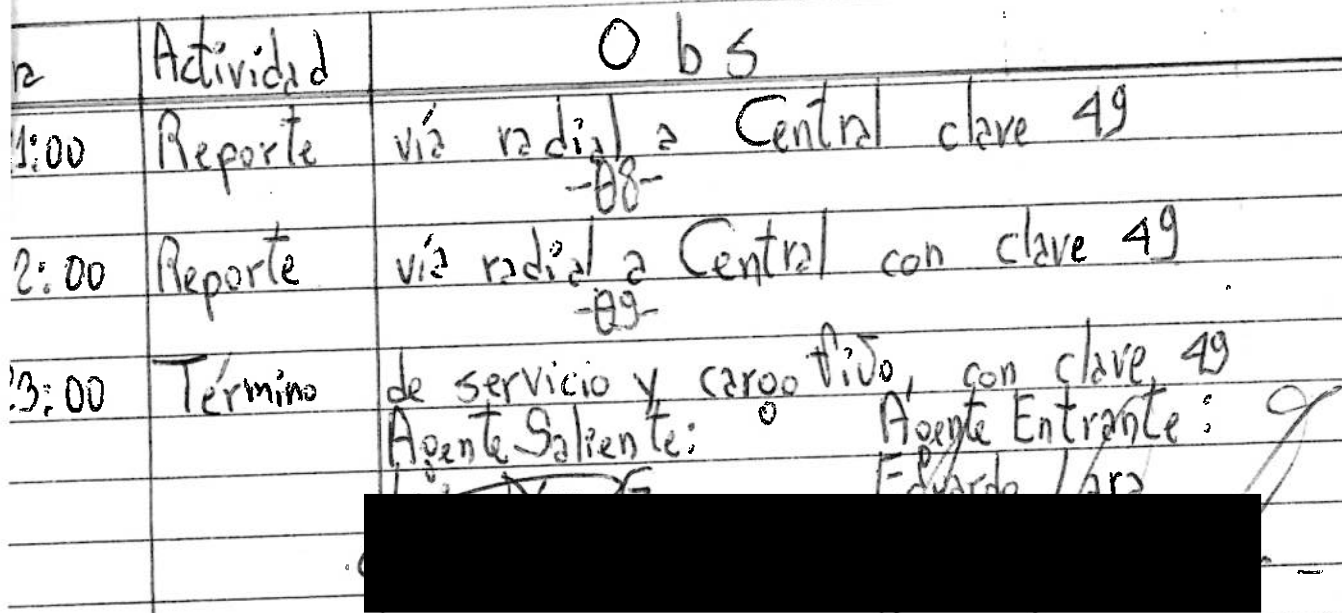 a Actividad Obs
1:00 Reporte vía radial a Central clave 49
-08-
2:00 Reporte vía radial a Central con clave 49
-09-
3:00 Término de servicio y cargo fijo, con clave 49
Agente Saliente: Agente Entrante:
Eduardo Lara